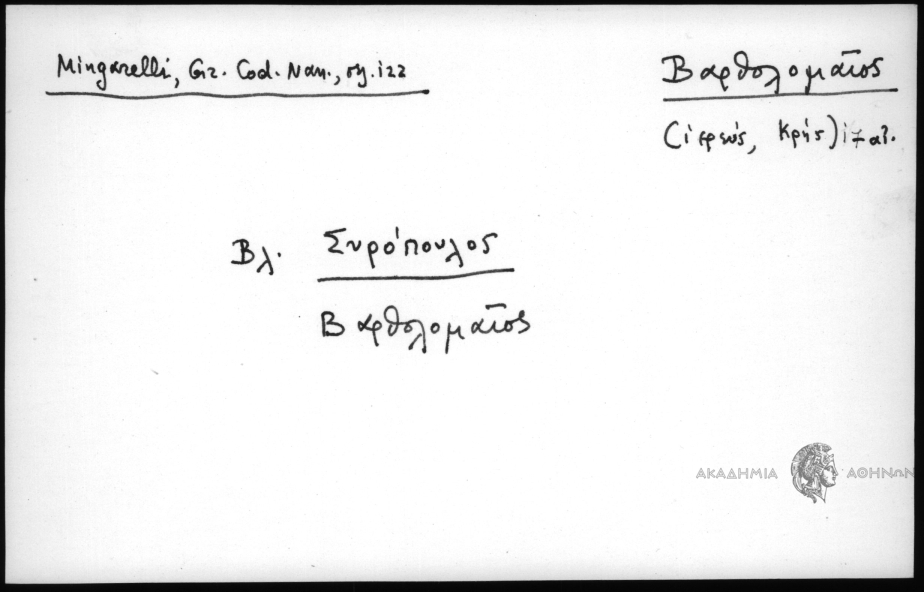 Mingarelli, Gr. Cod. Nan., σ. 122
Βαρθολομαῖος
(ἱερεύς, Κρής) 17 αἰ.
Βλ. Συρόπουλος
Βαρθολομαῖος
ΑΚΑΔΗΜΙΑ ΑΘΗΝΩΝ